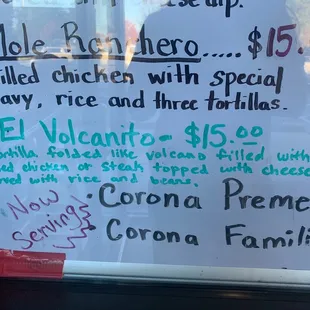 se dip.
Mole Ranchero..... $15.
illed chicken with special
avy, rice and three tortillas.
El Volcanito - $15.00
ortilla folded like volcano filled with
ed chicken or steak topped with cheese
rved with rice and beans.
Now Serving!
Corona Preme
Corona Famili